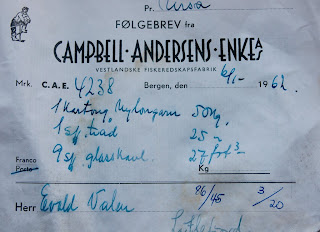 Pr. Ursa
FØLGEBREV fra
CAMPBELL·ANDERSENS·ENKE A/S
VESTLANDSKE FISKEREDSKAPSFABRIK
Mrk. C.A.E. 4238 Bergen, den 6/1- 1962.
1 kartong Nylongarn 50 kg.
1 sj. tråd 25 "
9 sj glaskavl. 27 fot³
Franco Kg
Porto
96/45 3/20
Herr Evald Valen